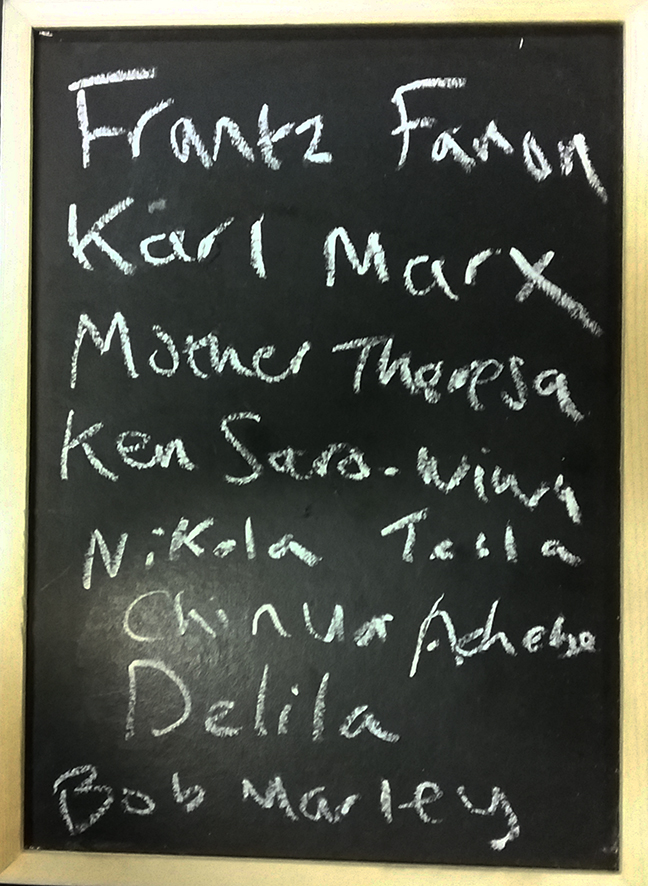 Frantz Fanon
Karl Marx
Mother Theresa
Ken Saro-Wiwa
Nikola Tesla
Chinua Achebe
Delila
Bob Marley